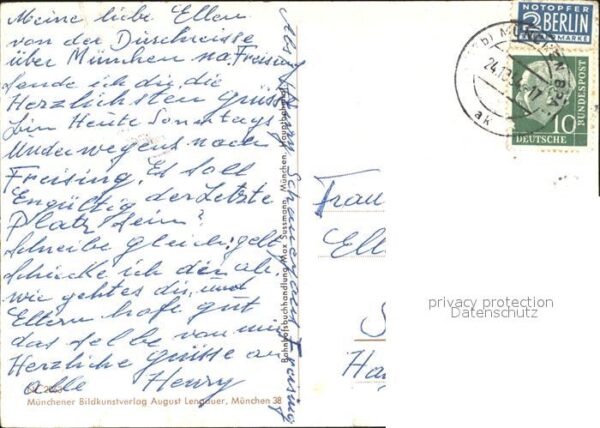 Meine liebe Ellen
von der Durchreise
über München na. Freising
sende ich dir die
Herzlichsten Grüsse
bin Heute Sonntags
Underwegens nach
Freising. Es soll
Engültig der Letzte
Platz sein?
schreibe gleich, gelt,
schicke ich dir ab.
wie geht es dir, und
Eltern hoffe gut
das selbe von mir
Herzliche grüsse an
alle Henry
Freising
Bahnhofsbuchhandlung Max Sussmann, München, Hauptbahnhof
Münchener Bildkunstverlag August Lengauer, München 38
NOTOPFER
2 BERLIN
STEUERMARKE
MÜNCHEN BPA
ak
10
DEUTSCHE
BUNDESPOST
Frau
Ell
S
Ha
privacy protection
Datenschutz